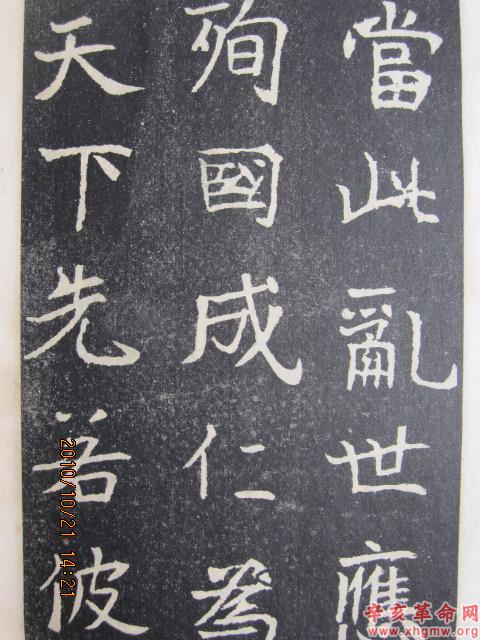 當此亂世應
殉國成仁為
天下先若彼
2010/10/21 14:21
辛亥革命网
www.xhgmw.org